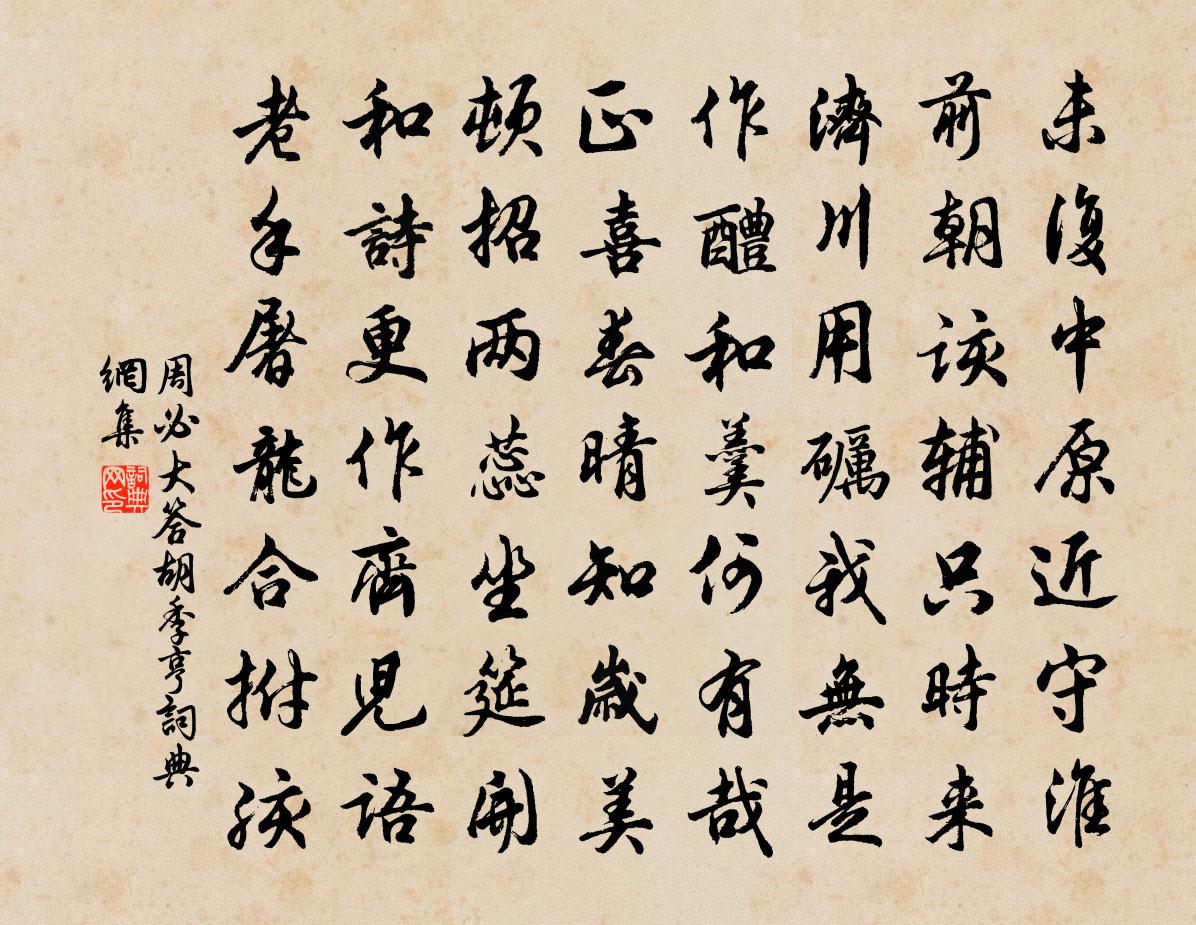 未復中原近守淮
前朝諺輔只時来
濟川用礪我無是
作醴和羹何有哉
正喜春晴知歲美
頓招兩蕊坐筵開
和詩更作齊児語
老手屠龍合拊孩
周必大答胡季亨詞典
網集
詞典
网印